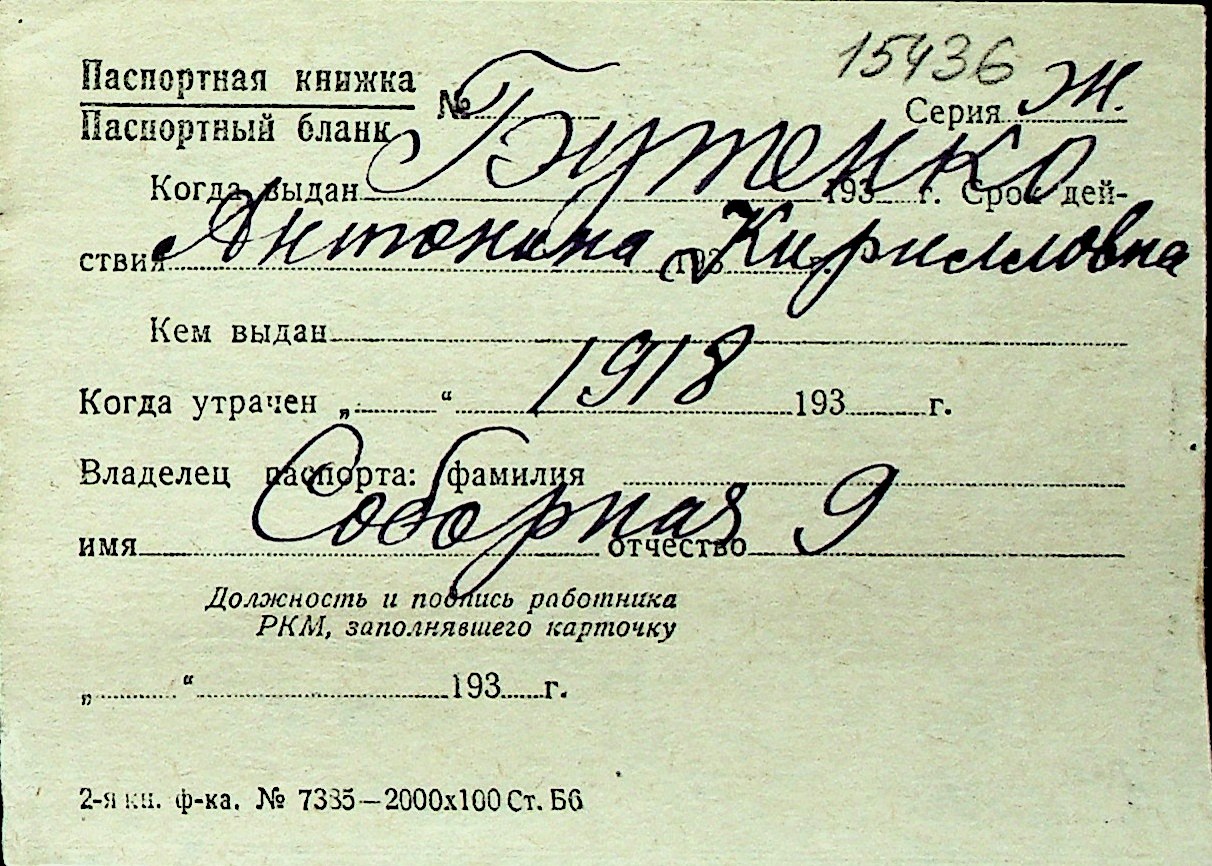 15436
Паспортная книжка
Паспортный бланк
№ Серия Ж.
Бутенко
Когда выдан 193 г. Срок дей-
Антонина Кирилловна
ствия 193 г.
Кем выдан
1918
Когда утрачен „ “ 193 г.
Владелец паспорта: фамилия
Соборная 9
имя отчество
Должность и подпись работника
РКМ, заполнявшего карточку
„ “ 193 г.
2-я кн. ф-ка. № 7385—2000х100 Ст. Б6